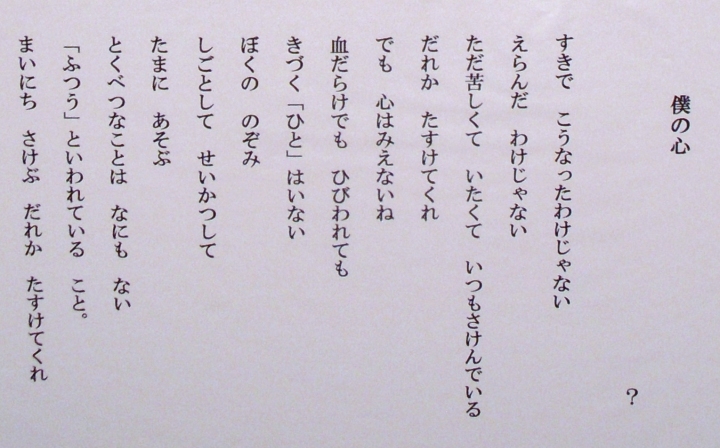 僕の心
？
すきで　こうなったわけじゃない
えらんだ　わけじゃない
ただ苦しくて　いたくて　いつもさけんでいる
だれか　たすけてくれ
でも　心はみえないね
血だらけでも　ひびわれても
きづく「ひと」はいない
ぼくの　のぞみ
しごとして　せいかつして
たまに　あそぶ
とくべつなことは　なにも　ない
「ふつう」といわれている　こと。
まいにち　さけぶ　だれか　たすけてくれ